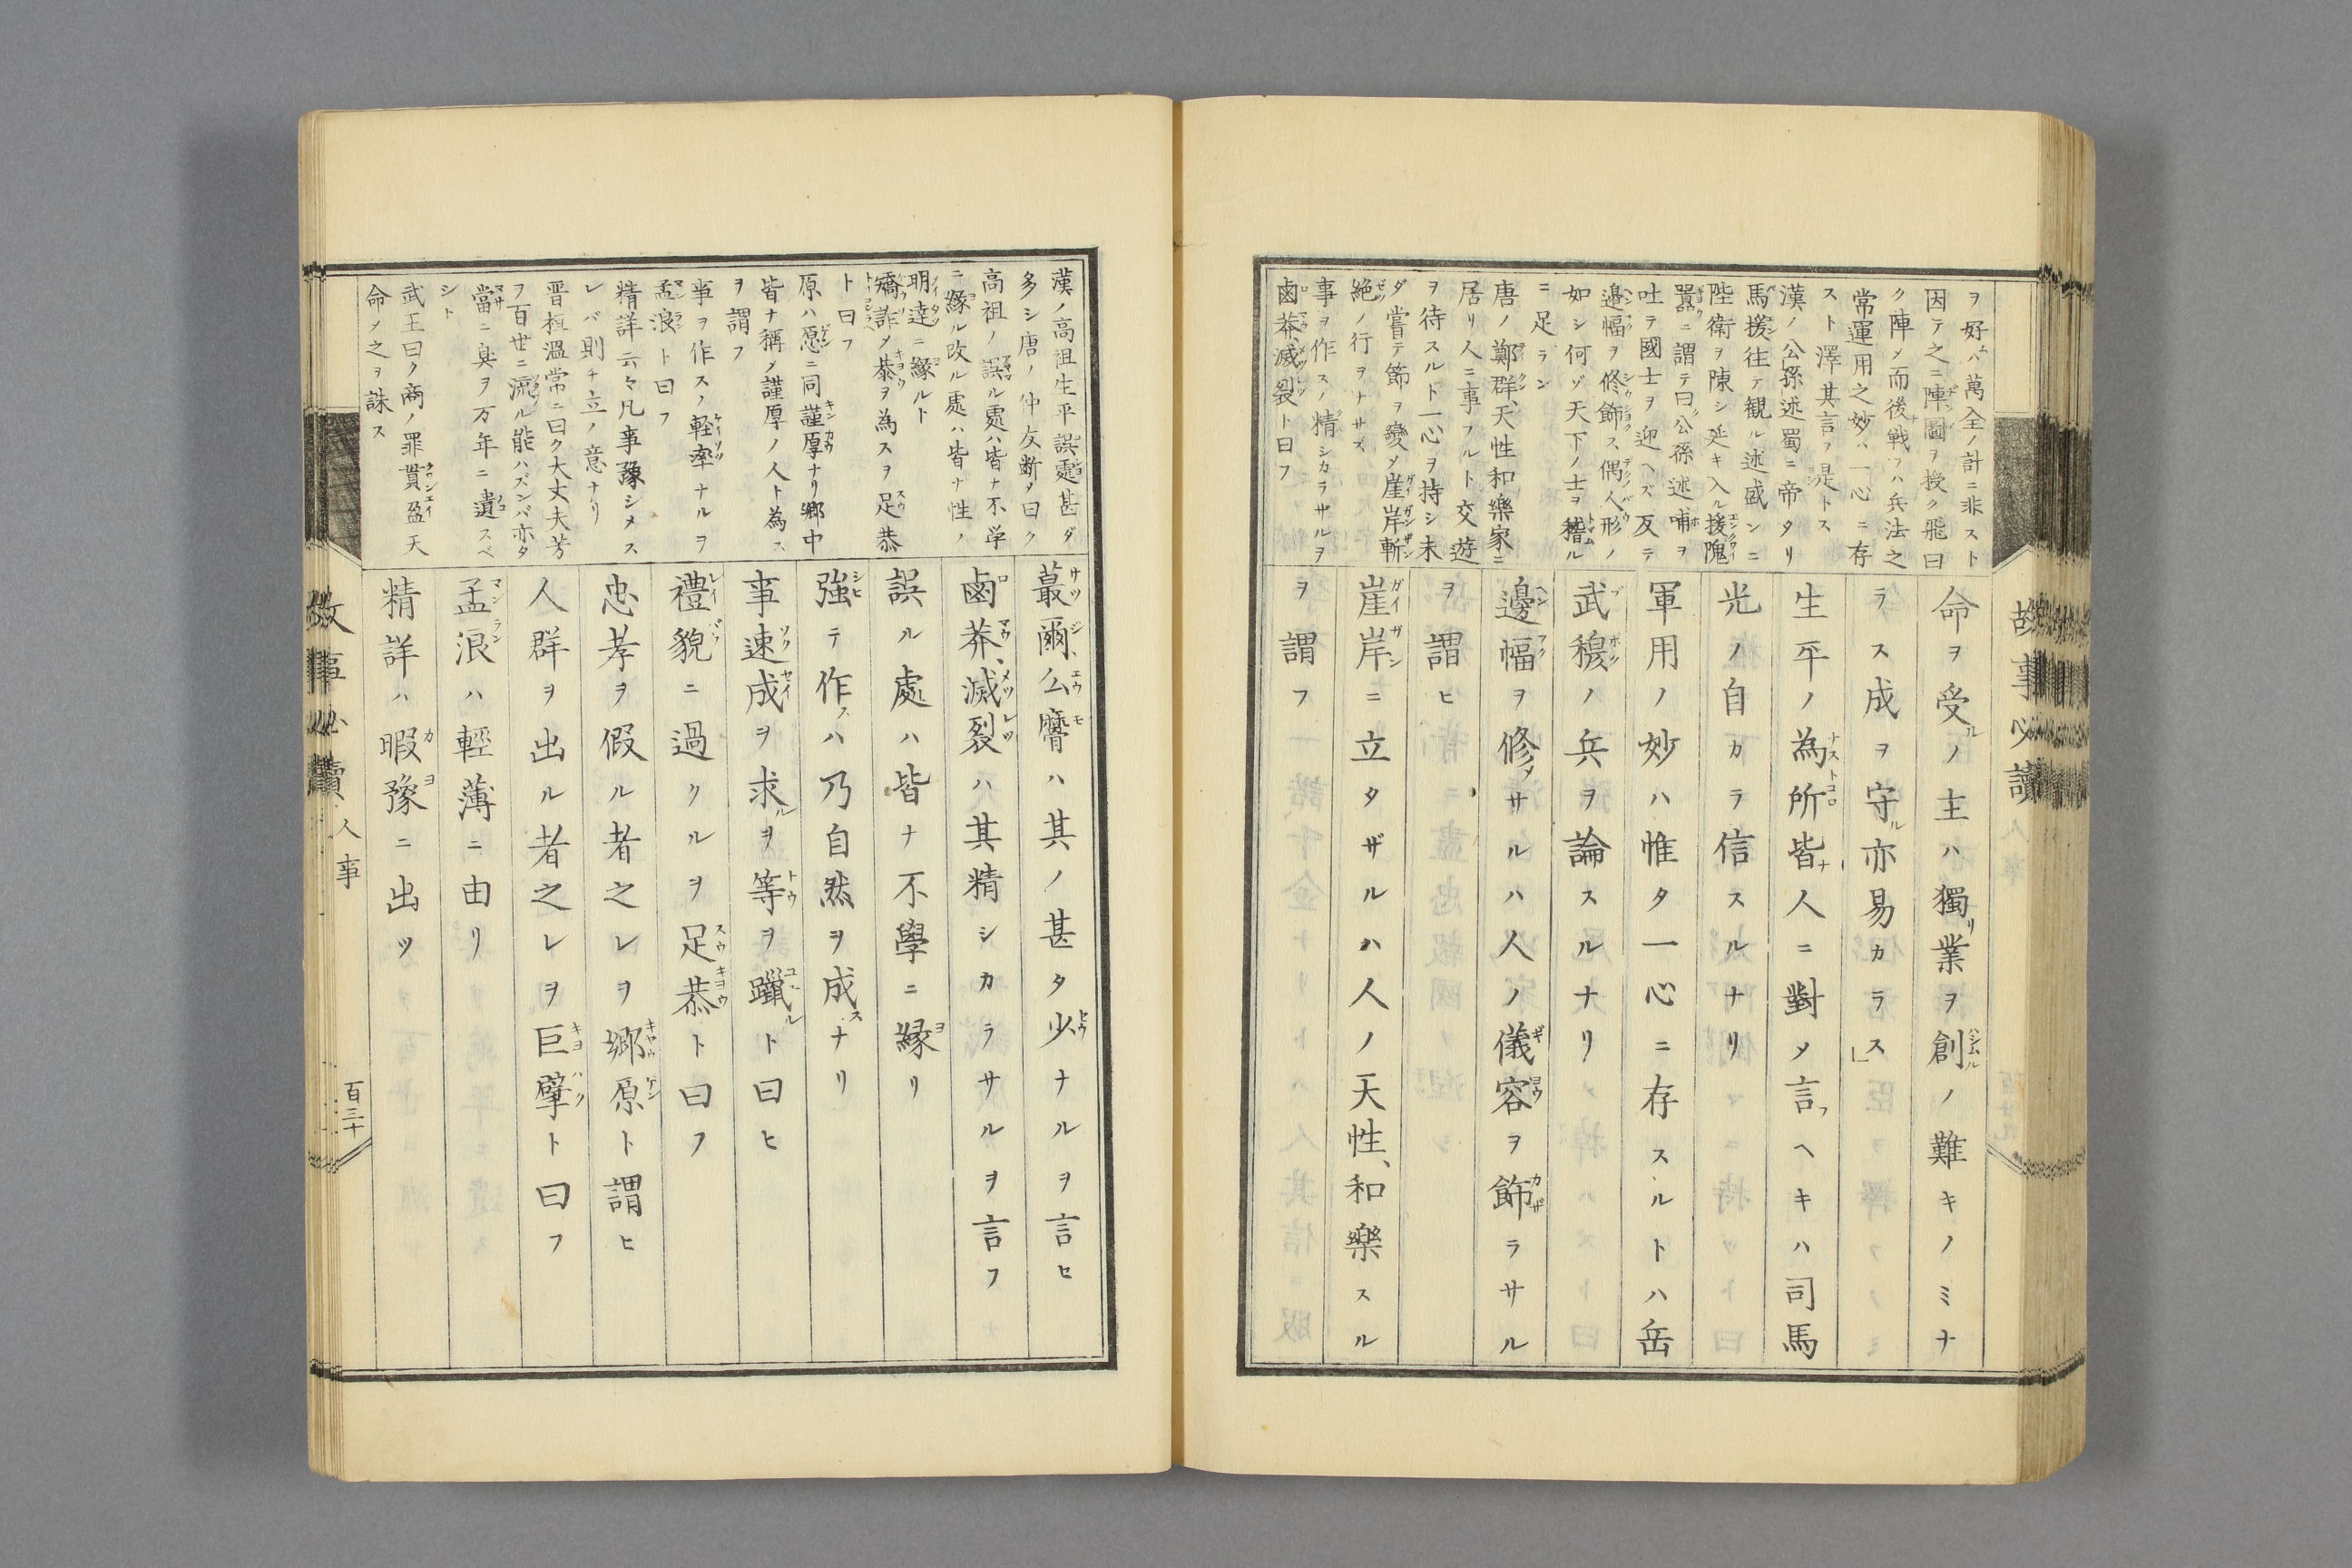 ヲ好ムハ萬全ノ計ニ非スト
因テ之ニ陣圖ヲ授ク飛曰
ク陣メ而後戰フハ兵法之
常運用之妙ハ一心ニ存
スト澤其言ヲ是トス
漢ノ公孫述蜀ニ帝タリ
馬援往テ観ル述盛ンニ
陛衛ヲ陳シ延キ入ル援隗
囂ニ謂テ曰公孫述哺ヲ
吐テ國士ヲ迎ヘズ反テ
邉幅ヲ修飾ス偶人形ノ
如シ何ゾ天下ノ士ヲ稽ル
ニ足ラン
唐ノ鄭群、天性和樂家ニ
居リ人ニ事フルト交遊
ヲ待スルト一心ヲ持シ未
ダ嘗テ節ヲ變メ崖岸斬
絶ノ行ヲナサズ
事ヲ作スノ精シカラサルヲ
鹵莽、滅裂ト曰フ
命ヲ受ルノ主ハ獨リ業ヲ創ノ難キノミナ
ラス成ヲ守ル亦易カラス」
生平ノ為所皆ナ人ニ對メ言フヘキハ司馬
光ノ自カラ信スルナリ
軍用ノ妙ハ惟タ一心ニ存スルトハ岳
武穆ノ兵ヲ論スルナリ
邊幅ヲ修メサルハ人ノ儀容ヲ飾ラサル
ヲ謂ヒ
崖岸ニ立タザルハ人ノ天性、和樂スル
ヲ謂フ
故事必讀
漢ノ高祖生平誤處甚ダ
多シ唐ノ仲友断メ曰ク
高祖ノ誤ル處ハ皆ナ不学
ニ縁ル改ル處ハ皆ナ性ノ
明達ニ縁ルト
矯詐メ恭ヲ為スヲ足恭
ト曰フ
原ハ愿ニ同謹厚ナリ郷中
皆ナ稱メ謹厚ノ人ト為ス
ヲ謂フ
事ヲ作スノ軽率ナルヲ
孟浪ト曰フ
精詳云々凡事豫シメス
レバ則チ立ノ意ナリ
晋桓溫常ニ曰ク大丈夫芳
ヲ百世ニ流ル能ハズンバ亦タ
當ニ臭ヲ万年ニ遺スベ
シト
武王曰ク商ノ罪貫盈天
命メ之ヲ誅ス
蕞爾、么麿ハ其ノ甚タ少ナルヲ言セ
鹵莽、滅裂ハ其精シカラサルヲ言フ
誤ル處ハ皆ナ不學ニ縁リ
強テ作スハ乃自然ヲ成スナリ
事速成ヲ求ルヲ等ヲ躐ルト曰ヒ
禮貌ニ過クルヲ足恭ト曰フ
忠孝ヲ假ル者之レヲ郷原ト謂ヒ
人群ヲ出ル者之レヲ巨擘ト曰フ
孟浪ハ輕薄ニ由リ
精詳ハ暇豫ニ出ツ
故事必讀 人事 百三十